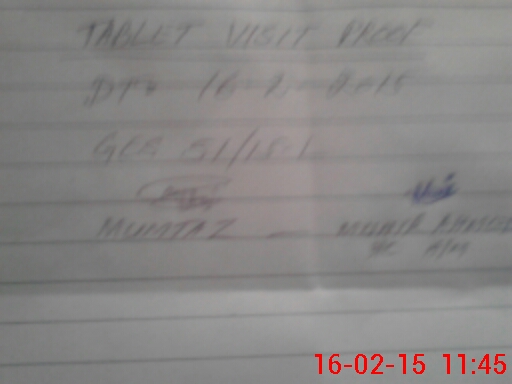 TABLET VISIT PROOF
DT: 16-2-2015
GES 51/15-L
MUMTAZ — MUNIR AHMED
16-02-15 11:45